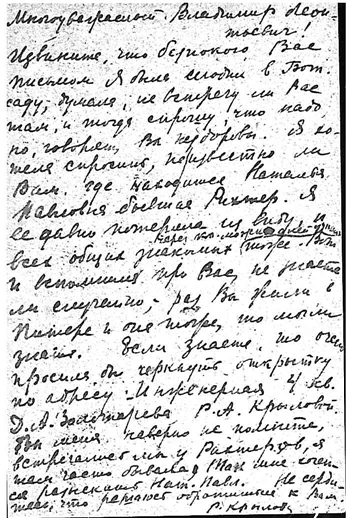 Многоуважаемый Владимир Леон-
тьевич!
Извините, что беспокою Вас
письмом. Я была сегодня в Бот.
саду, думала, не встречу ли Вас
там, и тогда спрошу, что надо,
но, говорят, Вы нездоровы. Я хо-
тела спросить, неизвестно ли
Вам, где находится Наталья
Павловна бывшая Рихтер. Я
ее давно потеряла из виду и
всех общих знакомых тоже. Вот
и вспомнила про Вас, не знаете
ли случайно, раз Вы жили в
Питере и она тоже, то могли
знать. Если знаете, то очень
просила бы черкнуть открытку
по адресу Инженерная 4 кв.
Д. А. Золотарева Р. А. Крыловой
Вы меня наверно не помните,
встречались мы у Рихтеров, я
там часто бывала. Мне хочет-
ся разыскать Нат. Павл. Не серди-
тесь, что решаюсь обратиться к Вам.
Р. Крылова